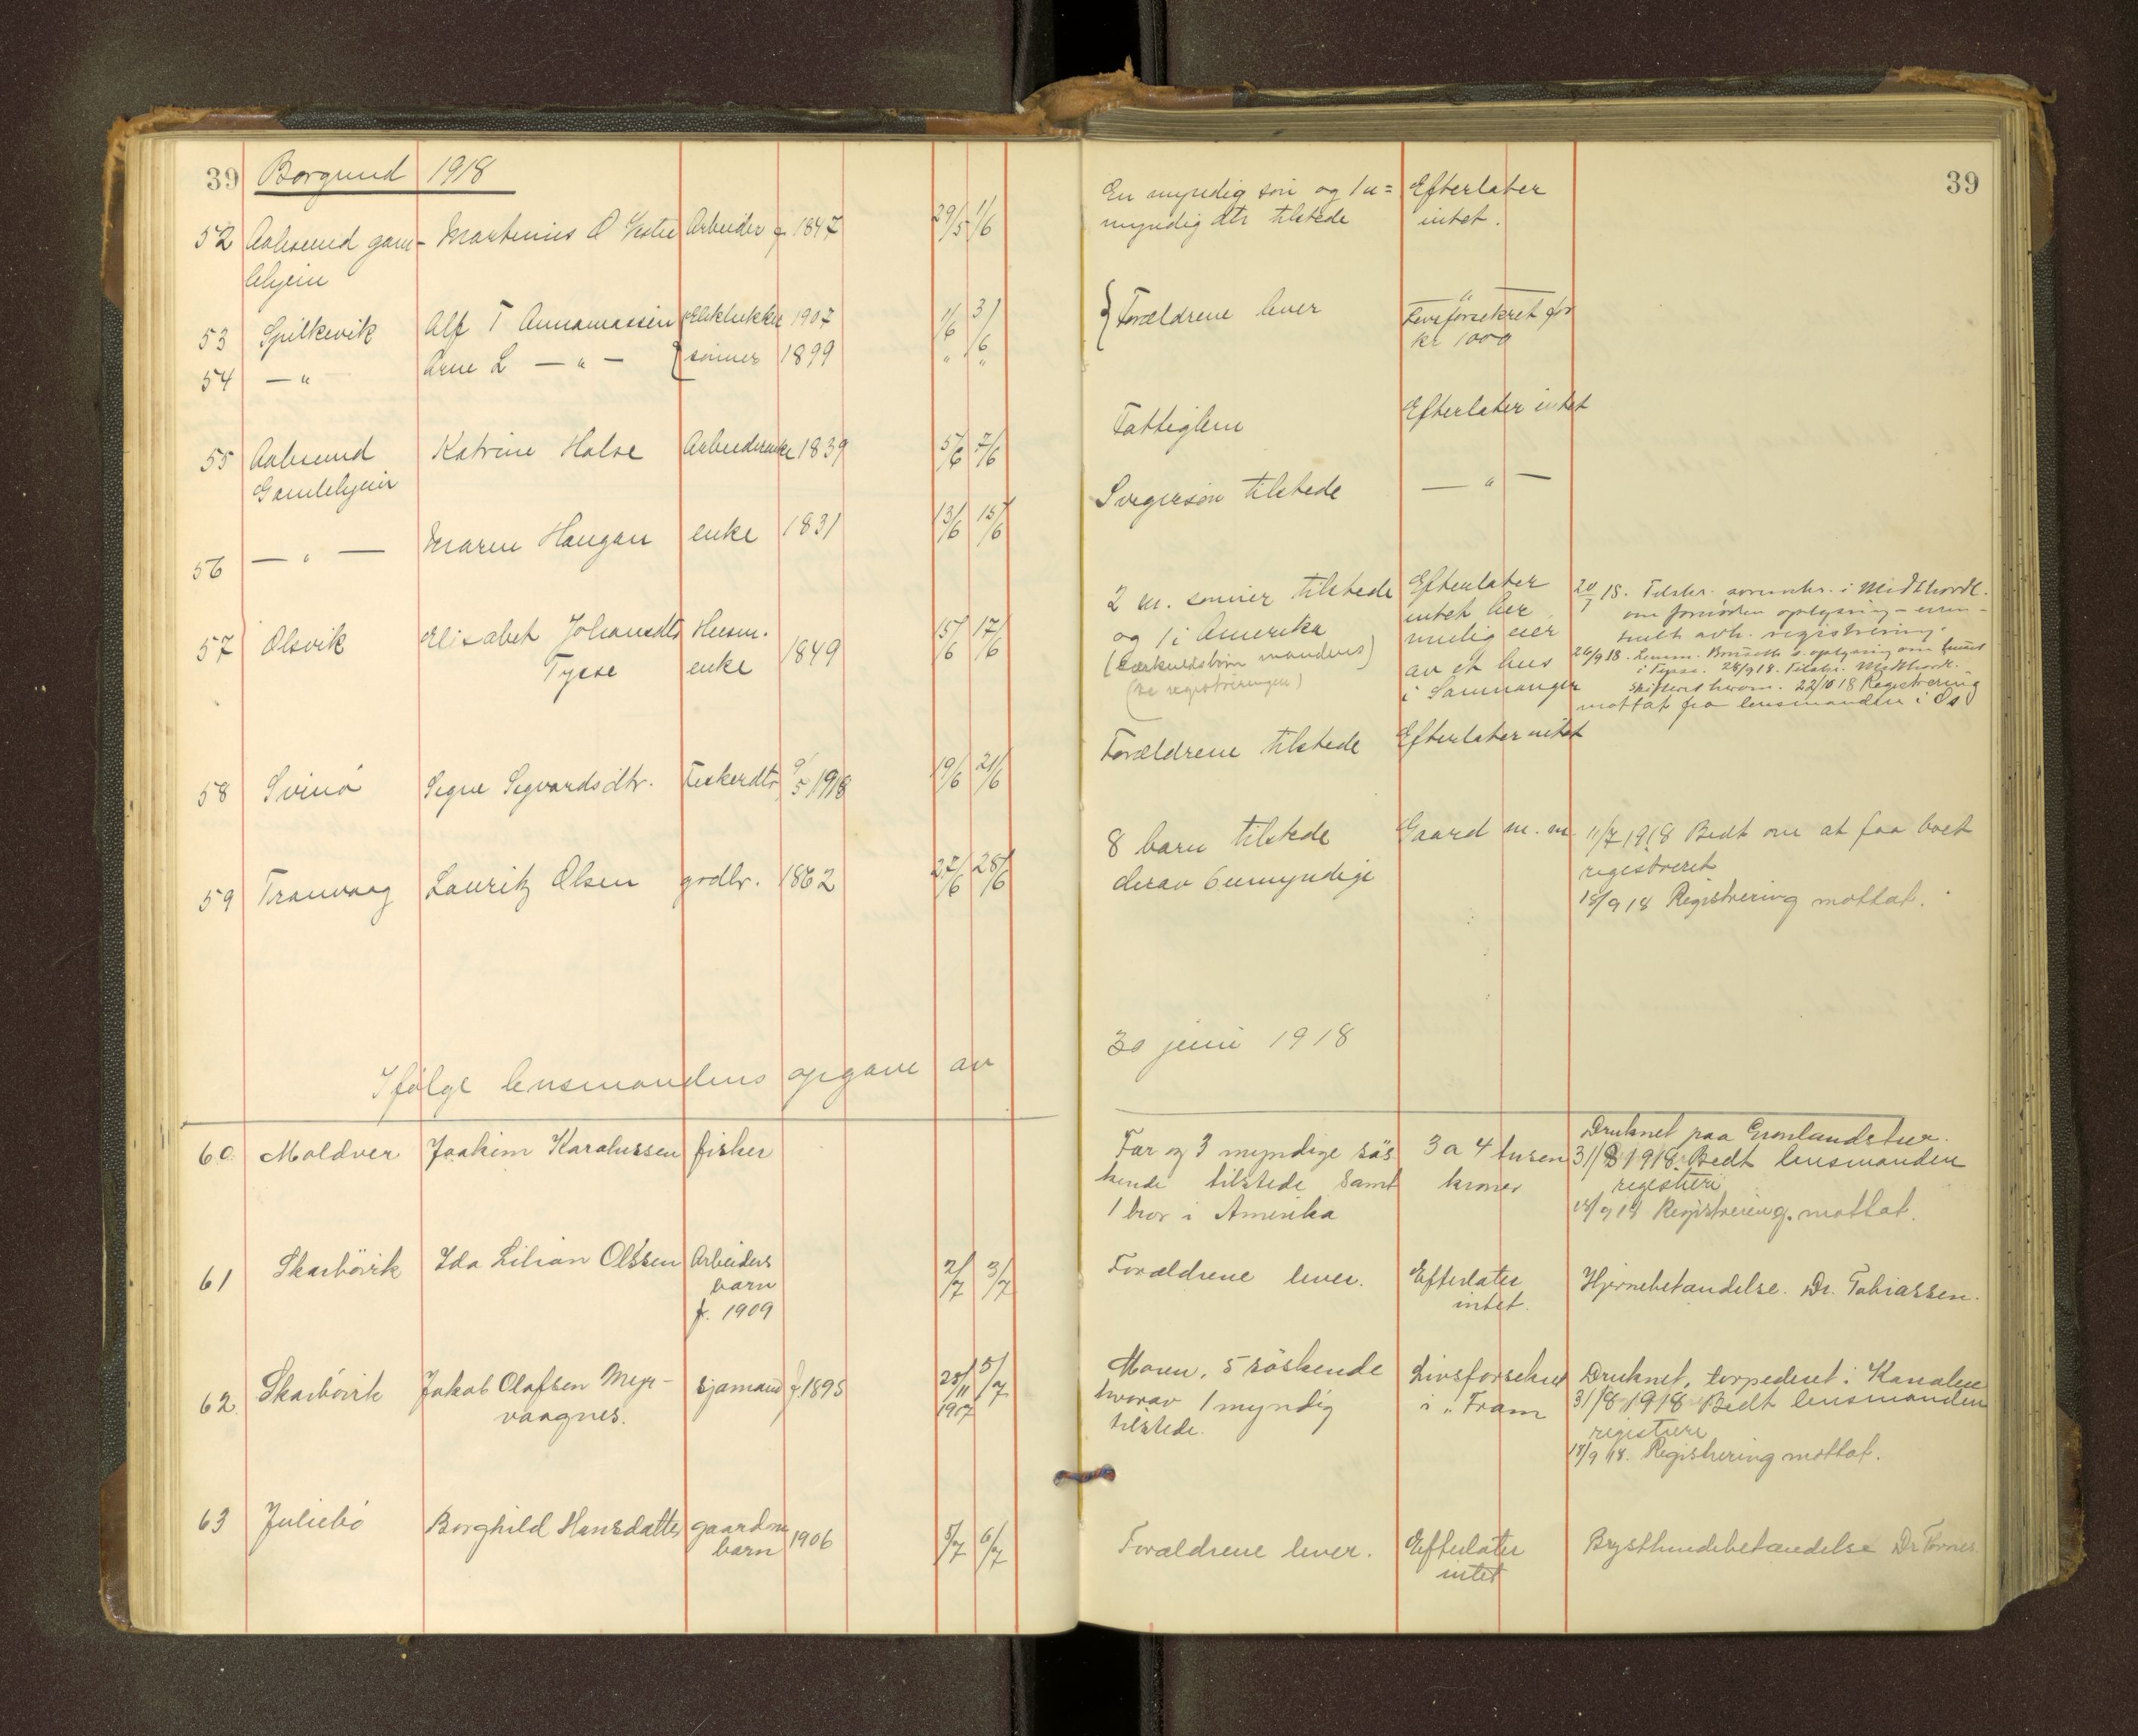 39 Borgund 1918
52 Aalesund gam- Martinius O Arbeider f 1847 29/5 1/6
lehjem
53 Spilkevik Alf T 1907 1/6 3/6
54 — " Arne L — " — sönner 1899 " "
55 Aalesund Katrine Halse Arbeiderenke 1839 5/6 7/6
Gamlehjem
56 — " — Maren Haugan enke 1831 13/6 15/6
57 Olsvik Elisabet Johansdtr Husm. 1849 15/6 17/6
Tysse enke
58 Svinö Signe Sigvardsdtr. Fiskerdtr 9/5 1918 19/6 21/6
59 Tranvaag Lauritz Olsen grdbr. 1862 27/6 28/6
Ifölge lensmandens opgave av
60 Moldver Joakim Karolussen fisker
61 Skarbövik Ida Lilian Olssen Arbeiders 2/7 3/7
barn
f. 1909
62 Skarbövik Jakob Olafsen Mege- sjømand f 1895 25/11 5/7
vaagnes. 1917
63 Juliebö Borghild Hansdatter gaardm 1906 5/7 6/7
barn
39
En myndig søn og 1 u= Efterlater
myndig dtr tilstede intet.
Forældrene lever " Livsforsikret for
kr 1000
Fattiglem Efterlater intet
Svigersøn tilstede — " —
2 m. sønner tilstede Efterlater 20/7 18. Tilskr. sorenskr. i Midthordl.
og 1 i Amerika intet her om fornöden oplysning -
(særkuldsbörn mandens) mulig eier avh. registrering.
(se registreringen) av et hus 26/9 18. Lensm. oplysning om huset
i Samnanger i Tysse. 28/9 18. Tilskr. Midthordl.
Skifteret herom. 22/10 18 Registrering
mottat fra lensmanden i Os
Forældrene tilstede Efterlater intet
8 barn tilstede Gaard m. m. 11/7 1918 Bedt om at faa boet
derav 6 umyndige registreret
18/9 18 Registrering mottat.
30 juni 1918
Druknet paa Grønlandstur.
Far og 3 myndige søs 3 a 4 tusen 31/8 1918. Bedt lensmanden
kende tilstede samt kroner registrere
1 bror i Amerika 18/9 18 Registrering mottat.
Forældrene lever. Efterlater Hjernebetændelse. Dr. Tobiassen.
intet.
Moren, 5 söskende Livsforsikret Druknet, torpedert i Kanalen
hvorav 1 myndig i "Fram 31/8 1918 Bedt lensmanden
tilstede. registrere
18/9 18. Registrering mottat.
Forældrene lever. Efterlater Brysthindebetændelse Dr
intet